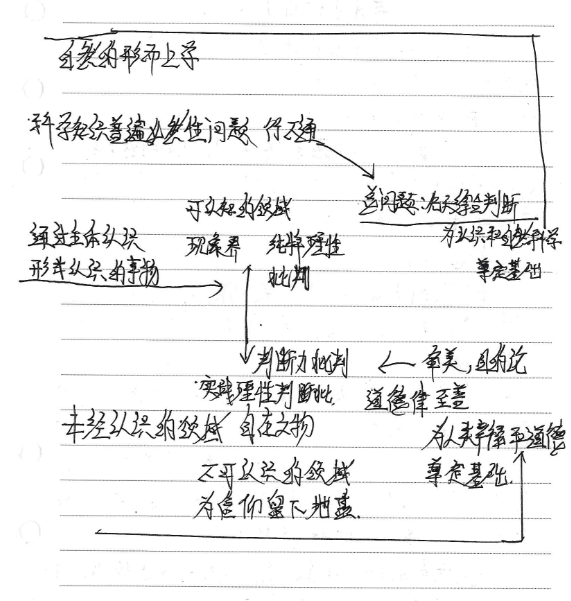 自然的形而上学
科学知识普遍必然性问题 行不通
总问题:先天综合判断
可认知的领域
为认识和自然科学
奠定基础
通过主体认识
形式认识的事物
现象界 纯粹理性
批判
判断力批判 ← 审美,目的论
实践理性判断批 道德律 至善
未经认识的领域 自在之物
为人类幸福和道德
奠定基础
不可认识的领域
为信仰留下地盘.